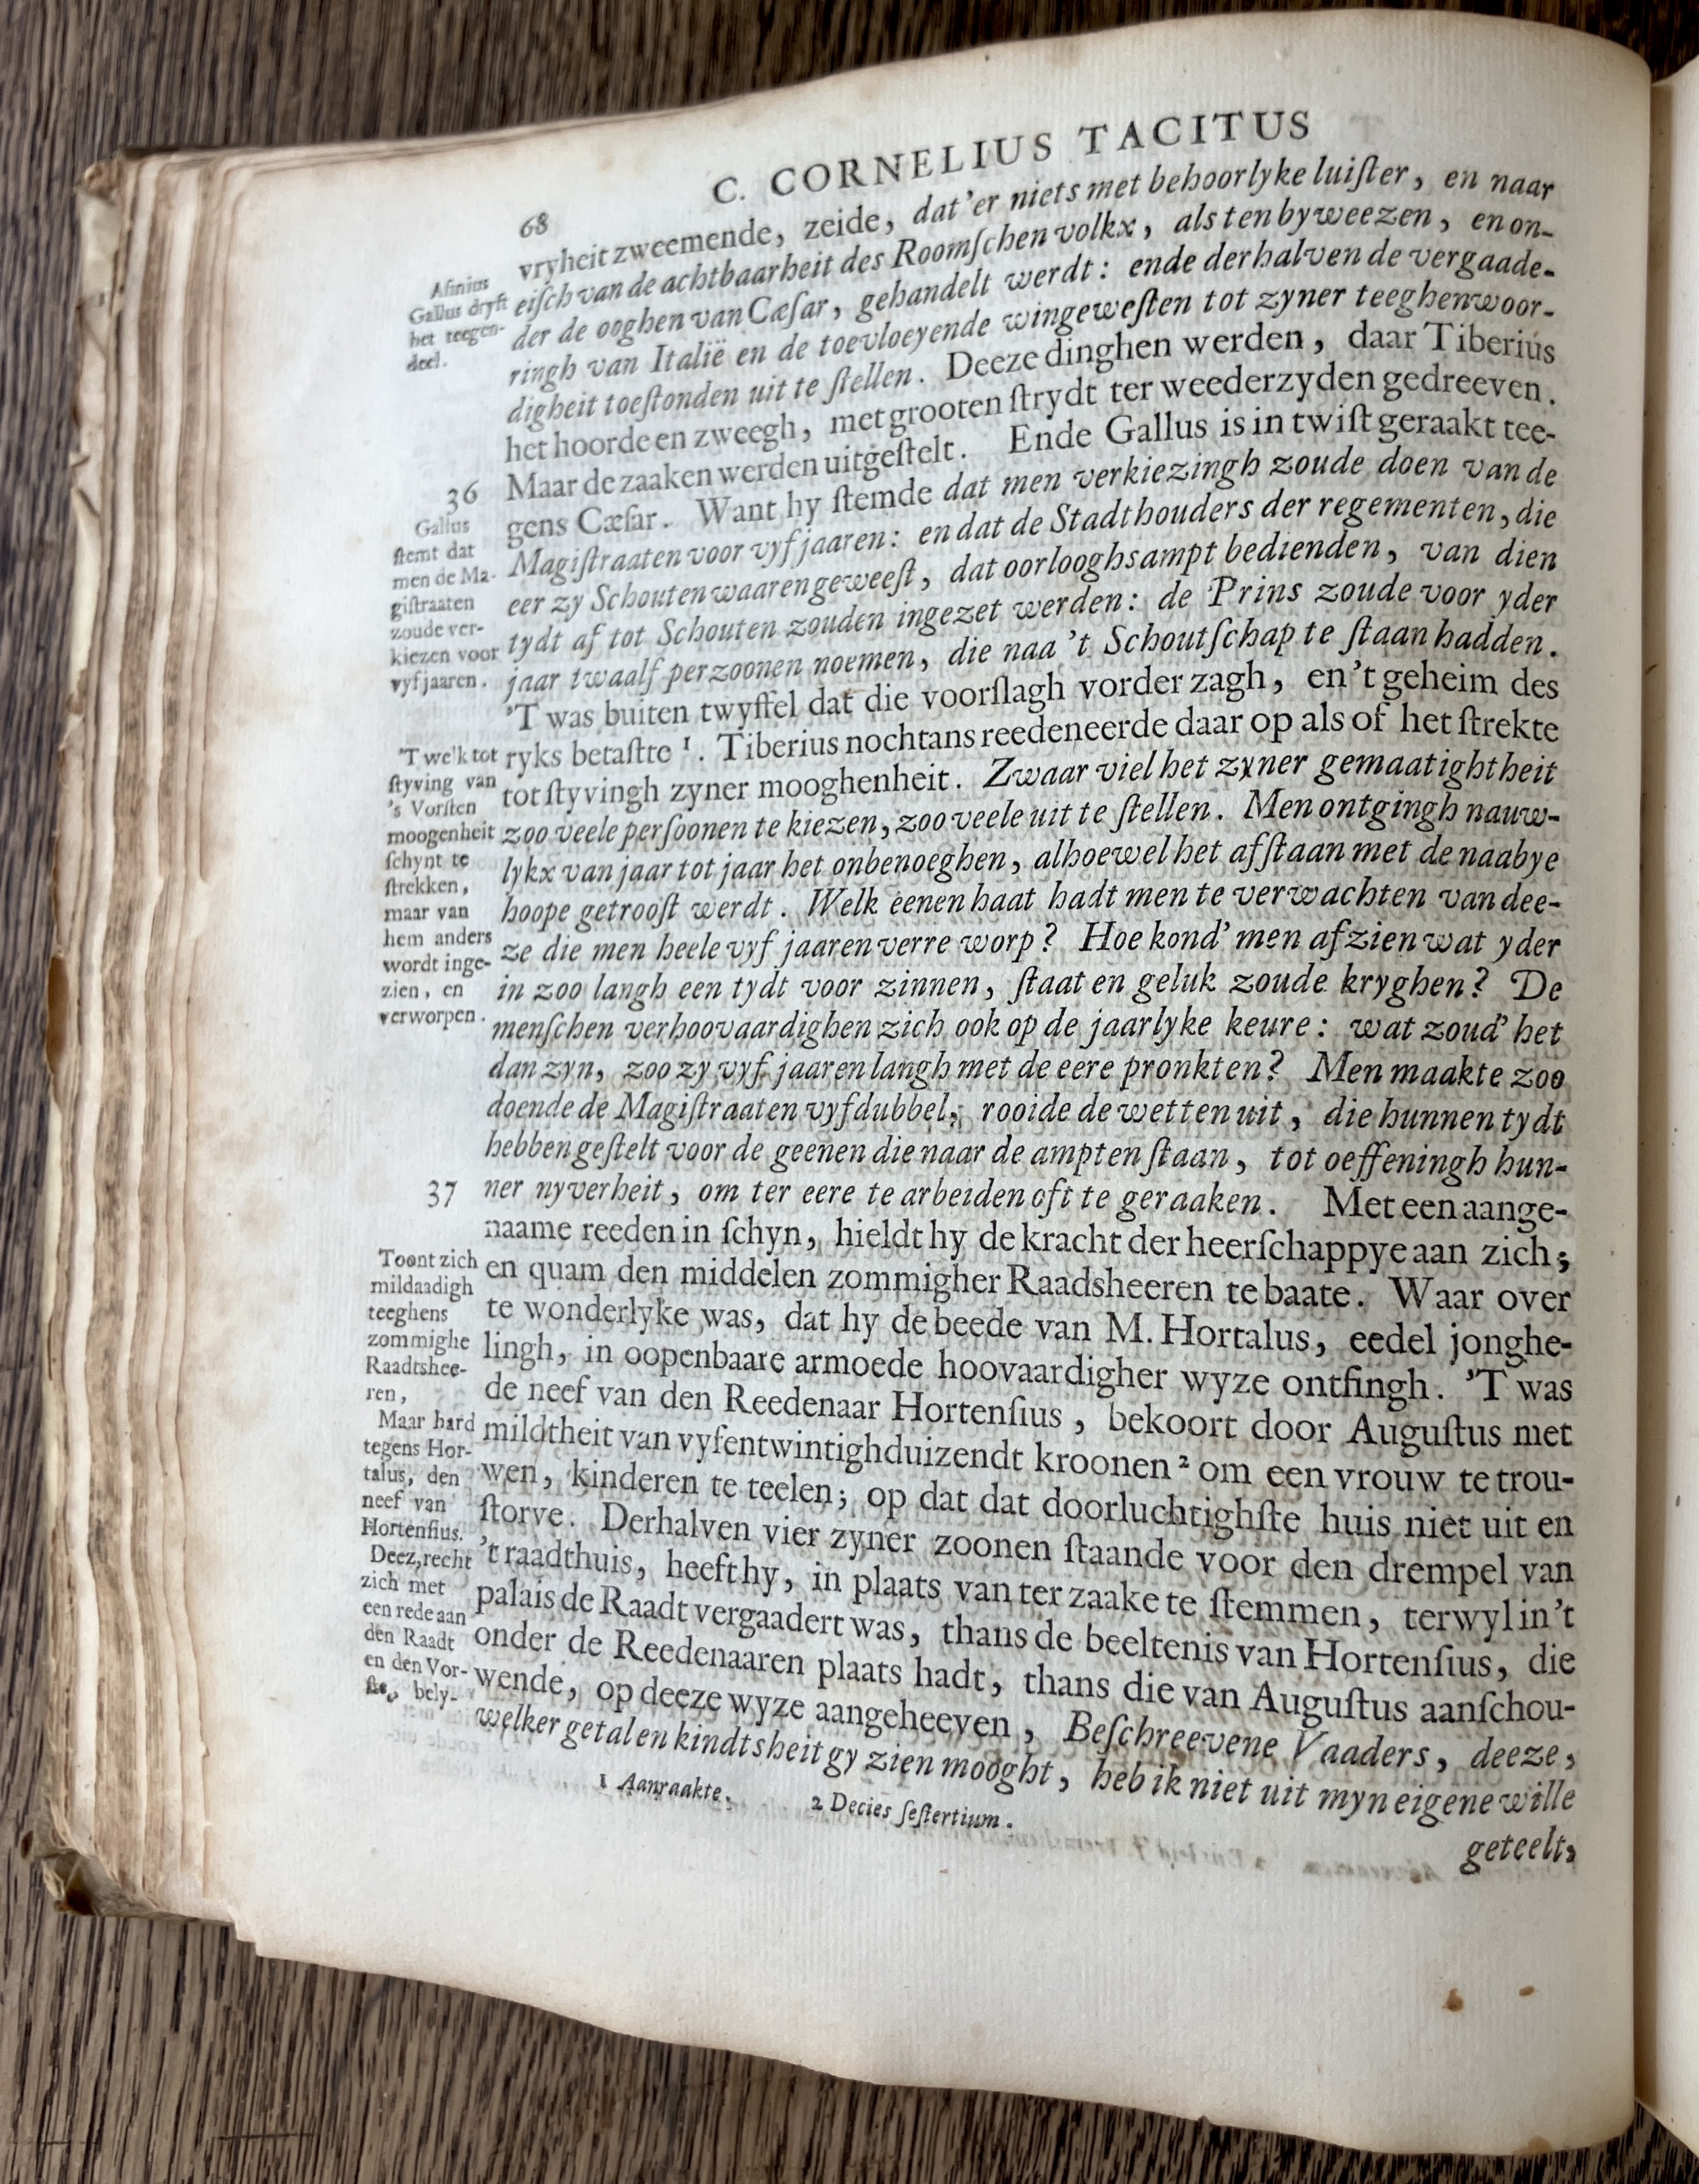 68
C. CORNELIUS TACITUS
vryheit zweemende, zeide, dat'er niets met behoorlyke luiſter, en naar
eiſch van de achtbaarheit des Roomſchen volkx, als ten byweezen, en on-
der de ooghen van Cæſar, gehandelt werdt: ende derhalven de vergaade-
ringh van Italië en de toevloeyende wingeweſten tot zyner teeghenwoor-
digheit toeſtonden uit te ſtellen. Deeze dinghen werden, daar Tiberius
het hoorde en zweegh, met grooten ſtrydt ter weederzyden gedreeven.
Maar de zaaken werden uitgeſtelt. Ende Gallus is in twiſt geraakt tee-
gens Cæſar. Want hy ſtemde dat men verkiezingh zoude doen van de
Magiſtraaten voor vyf jaaren: en dat de Stadthouders der regementen, die
eer zy Schouten waaren geweeſt, dat oorlooghsampt bedienden, van dien
tydt af tot Schouten zouden ingezet werden: de Prins zoude voor yder
jaar twaalf perzoonen noemen, die naa 't Schoutſchap te ſtaan hadden.
'T was buiten twyffel dat die voorſlagh vorder zagh, en 't geheim des
ryks betaſtre 1. Tiberius nochtans reedeneerde daar op als of het ſtrekte
tot ſtyvingh zyner mooghenheit. Zwaar viel het zyner gemaatightheit
zoo veele perſoonen te kiezen, zoo veele uit te ſtellen. Men ontgingh nauw-
lykx van jaar tot jaar het onbenoeghen, alhoewel het afſtaan met de naabye
hoope getrooſt werdt. Welk eenen haat hadt men te verwachten van dee-
ze die men heele vyf jaaren verre worp? Hoe kond' men afzien wat yder
in zoo langh een tydt voor zinnen, ſtaat en geluk zoude kryghen? De
menſchen verhoovaardighen zich ook op de jaarlyke keure: wat zoud' het
dan zyn, zoo zy vyf jaaren langh met de eere pronkten? Men maakte zoo
doende de Magiſtraaten vyfdubbel, rooide de wetten uit, die hunnen tydt
hebben geſtelt voor de geenen die naar de ampten ſtaan, tot oeffeningh hun-
ner nyverheit, om ter eere te arbeiden oft te geraaken. Met een aange-
naame reeden in ſchyn, hieldt hy de kracht der heerſchappye aan zich;
en quam den middelen zommigher Raadsheeren te baate. Waar over
te wonderlyke was, dat hy de beede van M. Hortalus, eedel jonghe-
lingh, in oopenbaare armoede hoovaardigher wyze ontfingh. 'T was
de neef van den Reedenaar Hortenſius, bekoort door Auguſtus met
mildtheit van vyfentwintighduizendt kroonen 2 om een vrouw te trou-
wen, kinderen te teelen; op dat dat doorluchtighſte huis niet uit en
ſtorve. Derhalven vier zyner zoonen ſtaande voor den drempel van
't raadthuis, heeft hy, in plaats van ter zaake te ſtemmen, terwyl in 't
palais de Raadt vergaadert was, thans de beeltenis van Hortenſius, die
onder de Reedenaaren plaats hadt, thans die van Auguſtus aanſchou-
wende, op deeze wyze aangeheeven, Beſchreevene Vaaders, deeze,
welker getal en kindtsheit gy zien mooght, heb ik niet uit myn eigene wille
geteelt,
1 Aanraakte. 2 Decies ſeſtertium.
Aſinius
Gallus dryft
het teegen-
deel.
36
Gallus
ſtemt dat
men de Ma-
giſtraaten
zoude ver-
kiezen voor
vyf jaaren.
'T welk tot
ſtyving van
's Vorſten
moogenheit
ſchynt te
ſtrekken,
maar van
hem anders
wordt inge-
zien, en
verworpen.
37
Toont zich
mildaadigh
teeghens
zommighe
Raadtshee-
ren,
Maar hard
tegens Hor-
talus, den
neef van
Hortenſius.
Deez, recht
zich met
een rede aan
den Raadt
en den Vor-
ſte, bely-